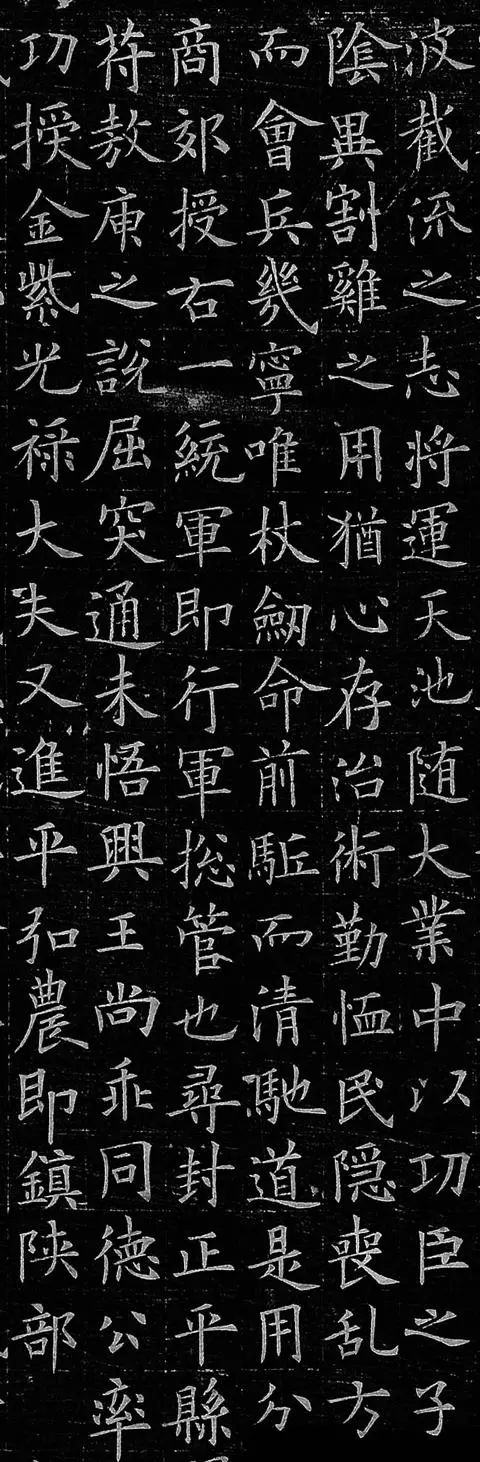 波截流之志将運天池随大業中以功臣之子
陰異割雞之用猶心存治術勤恤民隠喪乱方
而會兵幾寧唯杖劒命前駈而清馳道是用分
商郊授右一統軍即行軍揔管也尋封正平縣
荐敖庾之說屈突通未悟興王尚乖同德公率
功授金紫光禄大夫又進平弘農即鎮陝部